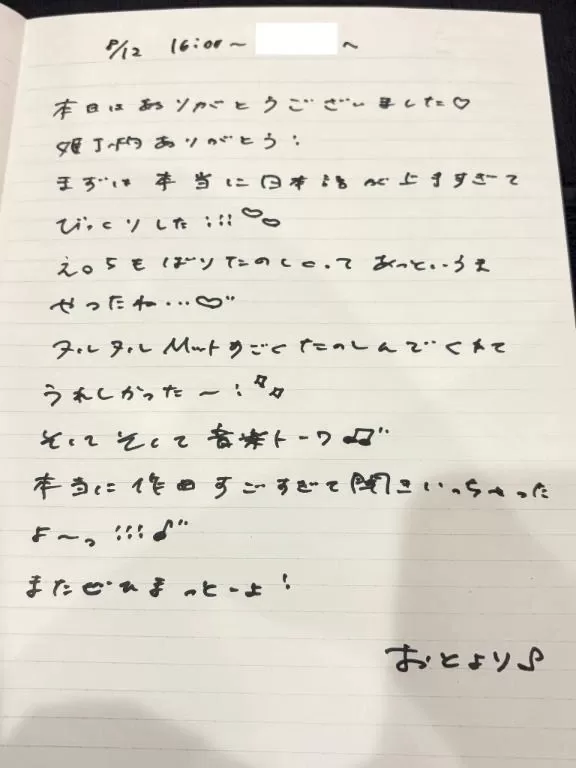 8/12 16:00〜 〜
本日はありがとうございました♡
ありがとう!
まずは 本当に日本語が上手すぎて
びっくりした!!!♡♡
たのしくって あっというま
やったね…♡
ヌルヌルMatもすごくたのしんでくれて
うれしかった〜!
そして そして 音楽トーク♫
本当に作曲すごすぎて聞きいっちゃった
よ〜っ!!!♪
またぜひまっとーよ!
おとより♪